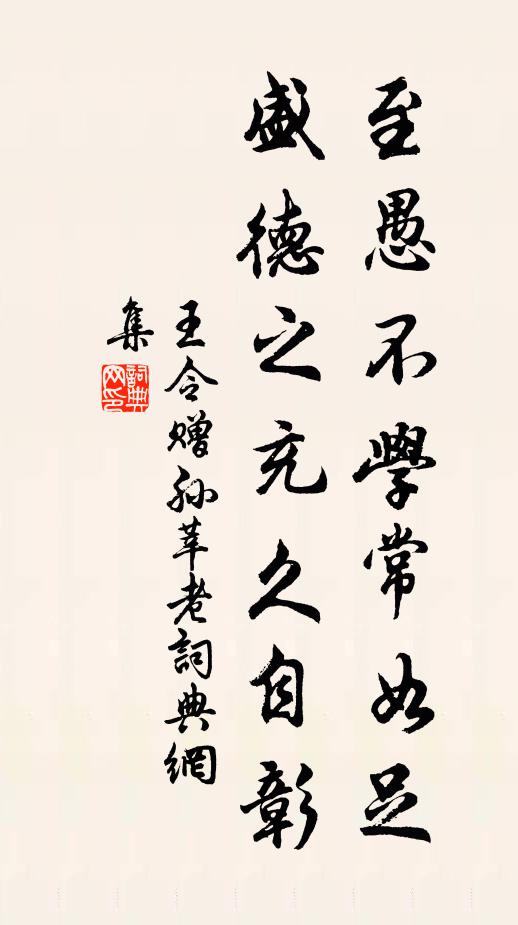 至愚不學常如足
盛德之充久自彰
王令贈孫莘老詞典網
集
詞典
网印